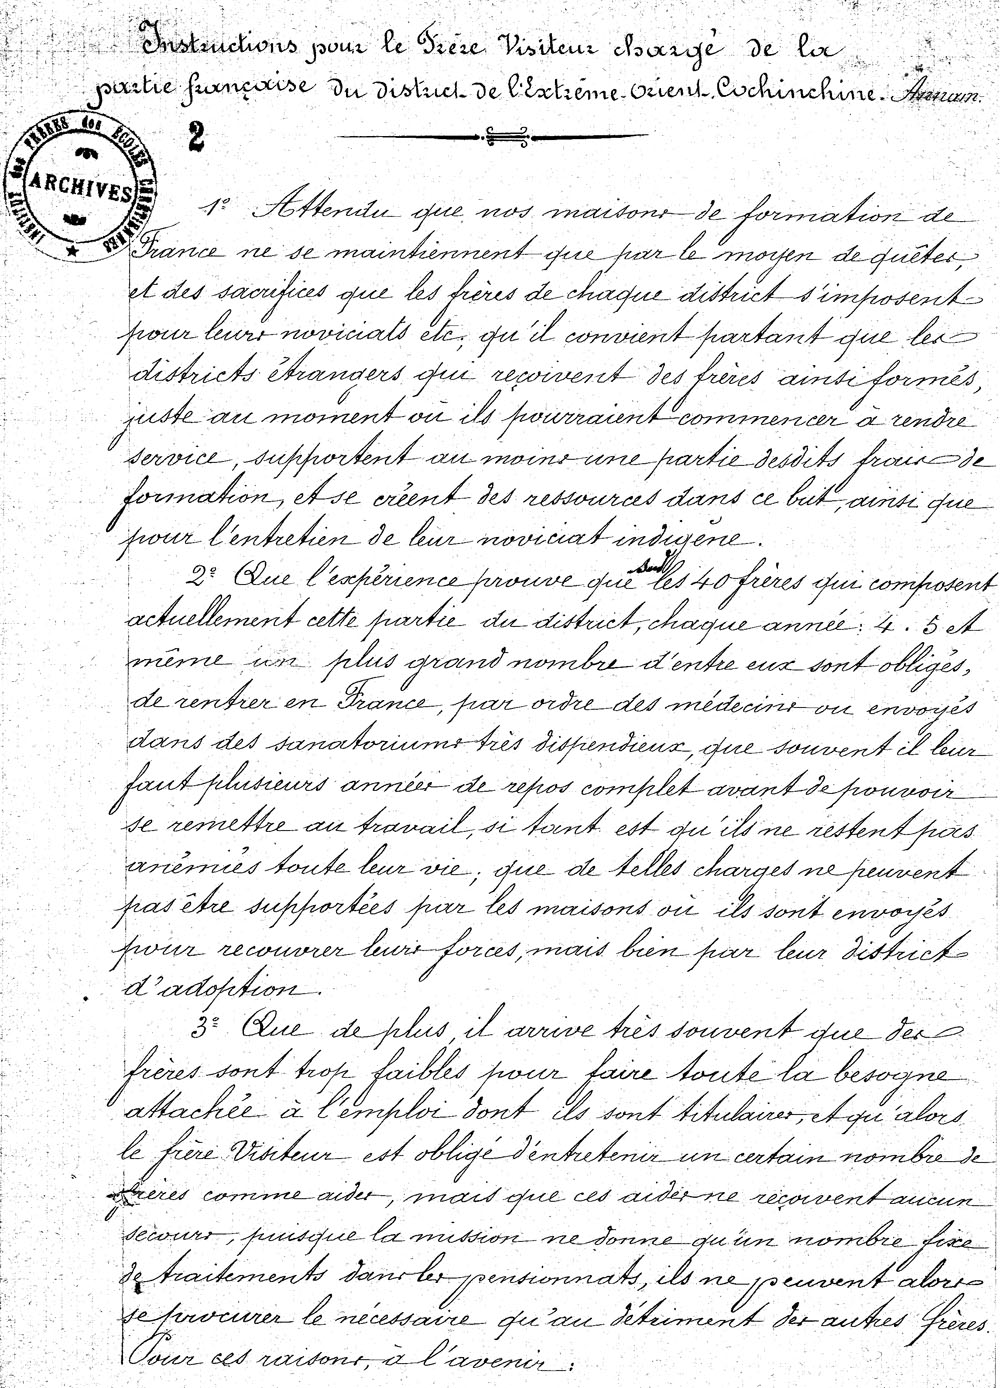 Instructions pour le Frère Visiteur chargé de la
partie française du district de l'Extrême-Orient. Cochinchine. Annam.
2
INSTITUT des FRÈRES des ÉCOLES CHRÉTIENNES
ARCHIVES
1º Attendu que nos maisons de formation de
France ne se maintiennent que par le moyen de quêtes,
et des sacrifices que les frères de chaque district s'imposent
pour leurs noviciats etc, qu'il convient partant que les
districts étrangers qui reçoivent des frères ainsi formés,
juste au moment où ils pourraient commencer à rendre
service, supportent au moins une partie desdits frais de
formation, et se créent des ressources dans ce but, ainsi que
pour l'entretien de leur noviciat indigène.
2º Que l'expérience prouve que sur les 40 frères qui composent
actuellement cette partie du district, chaque année: 4. 5 et
même un plus grand nombre d'entre eux sont obligés,
de rentrer en France, par ordre des médecins ou envoyés
dans des sanatoriums très dispendieux, que souvent il leur
faut plusieurs années de repos complet avant de pouvoir
se remettre au travail, si tant est qu'ils ne restent pas
anémiés toute leur vie; que de telles charges ne peuvent
pas être supportées par les maisons où ils sont envoyés
pour recouvrer leurs forces, mais bien par leur district
d'adoption.
3º Que de plus, il arrive très souvent que des
frères sont trop faibles pour faire toute la besogne
attachée à l'emploi dont ils sont titulaires, et qu'alors
le frère Visiteur est obligé d'entretenir un certain nombre de
frères comme aides, mais que ces aides ne reçoivent aucun
secours, puisque la mission ne donne qu'un nombre fixe
de traitements dans les pensionnats, ils ne peuvent alors
se procurer le nécessaire qu'au détriment des autres frères.
Pour ces raisons, à l'avenir: